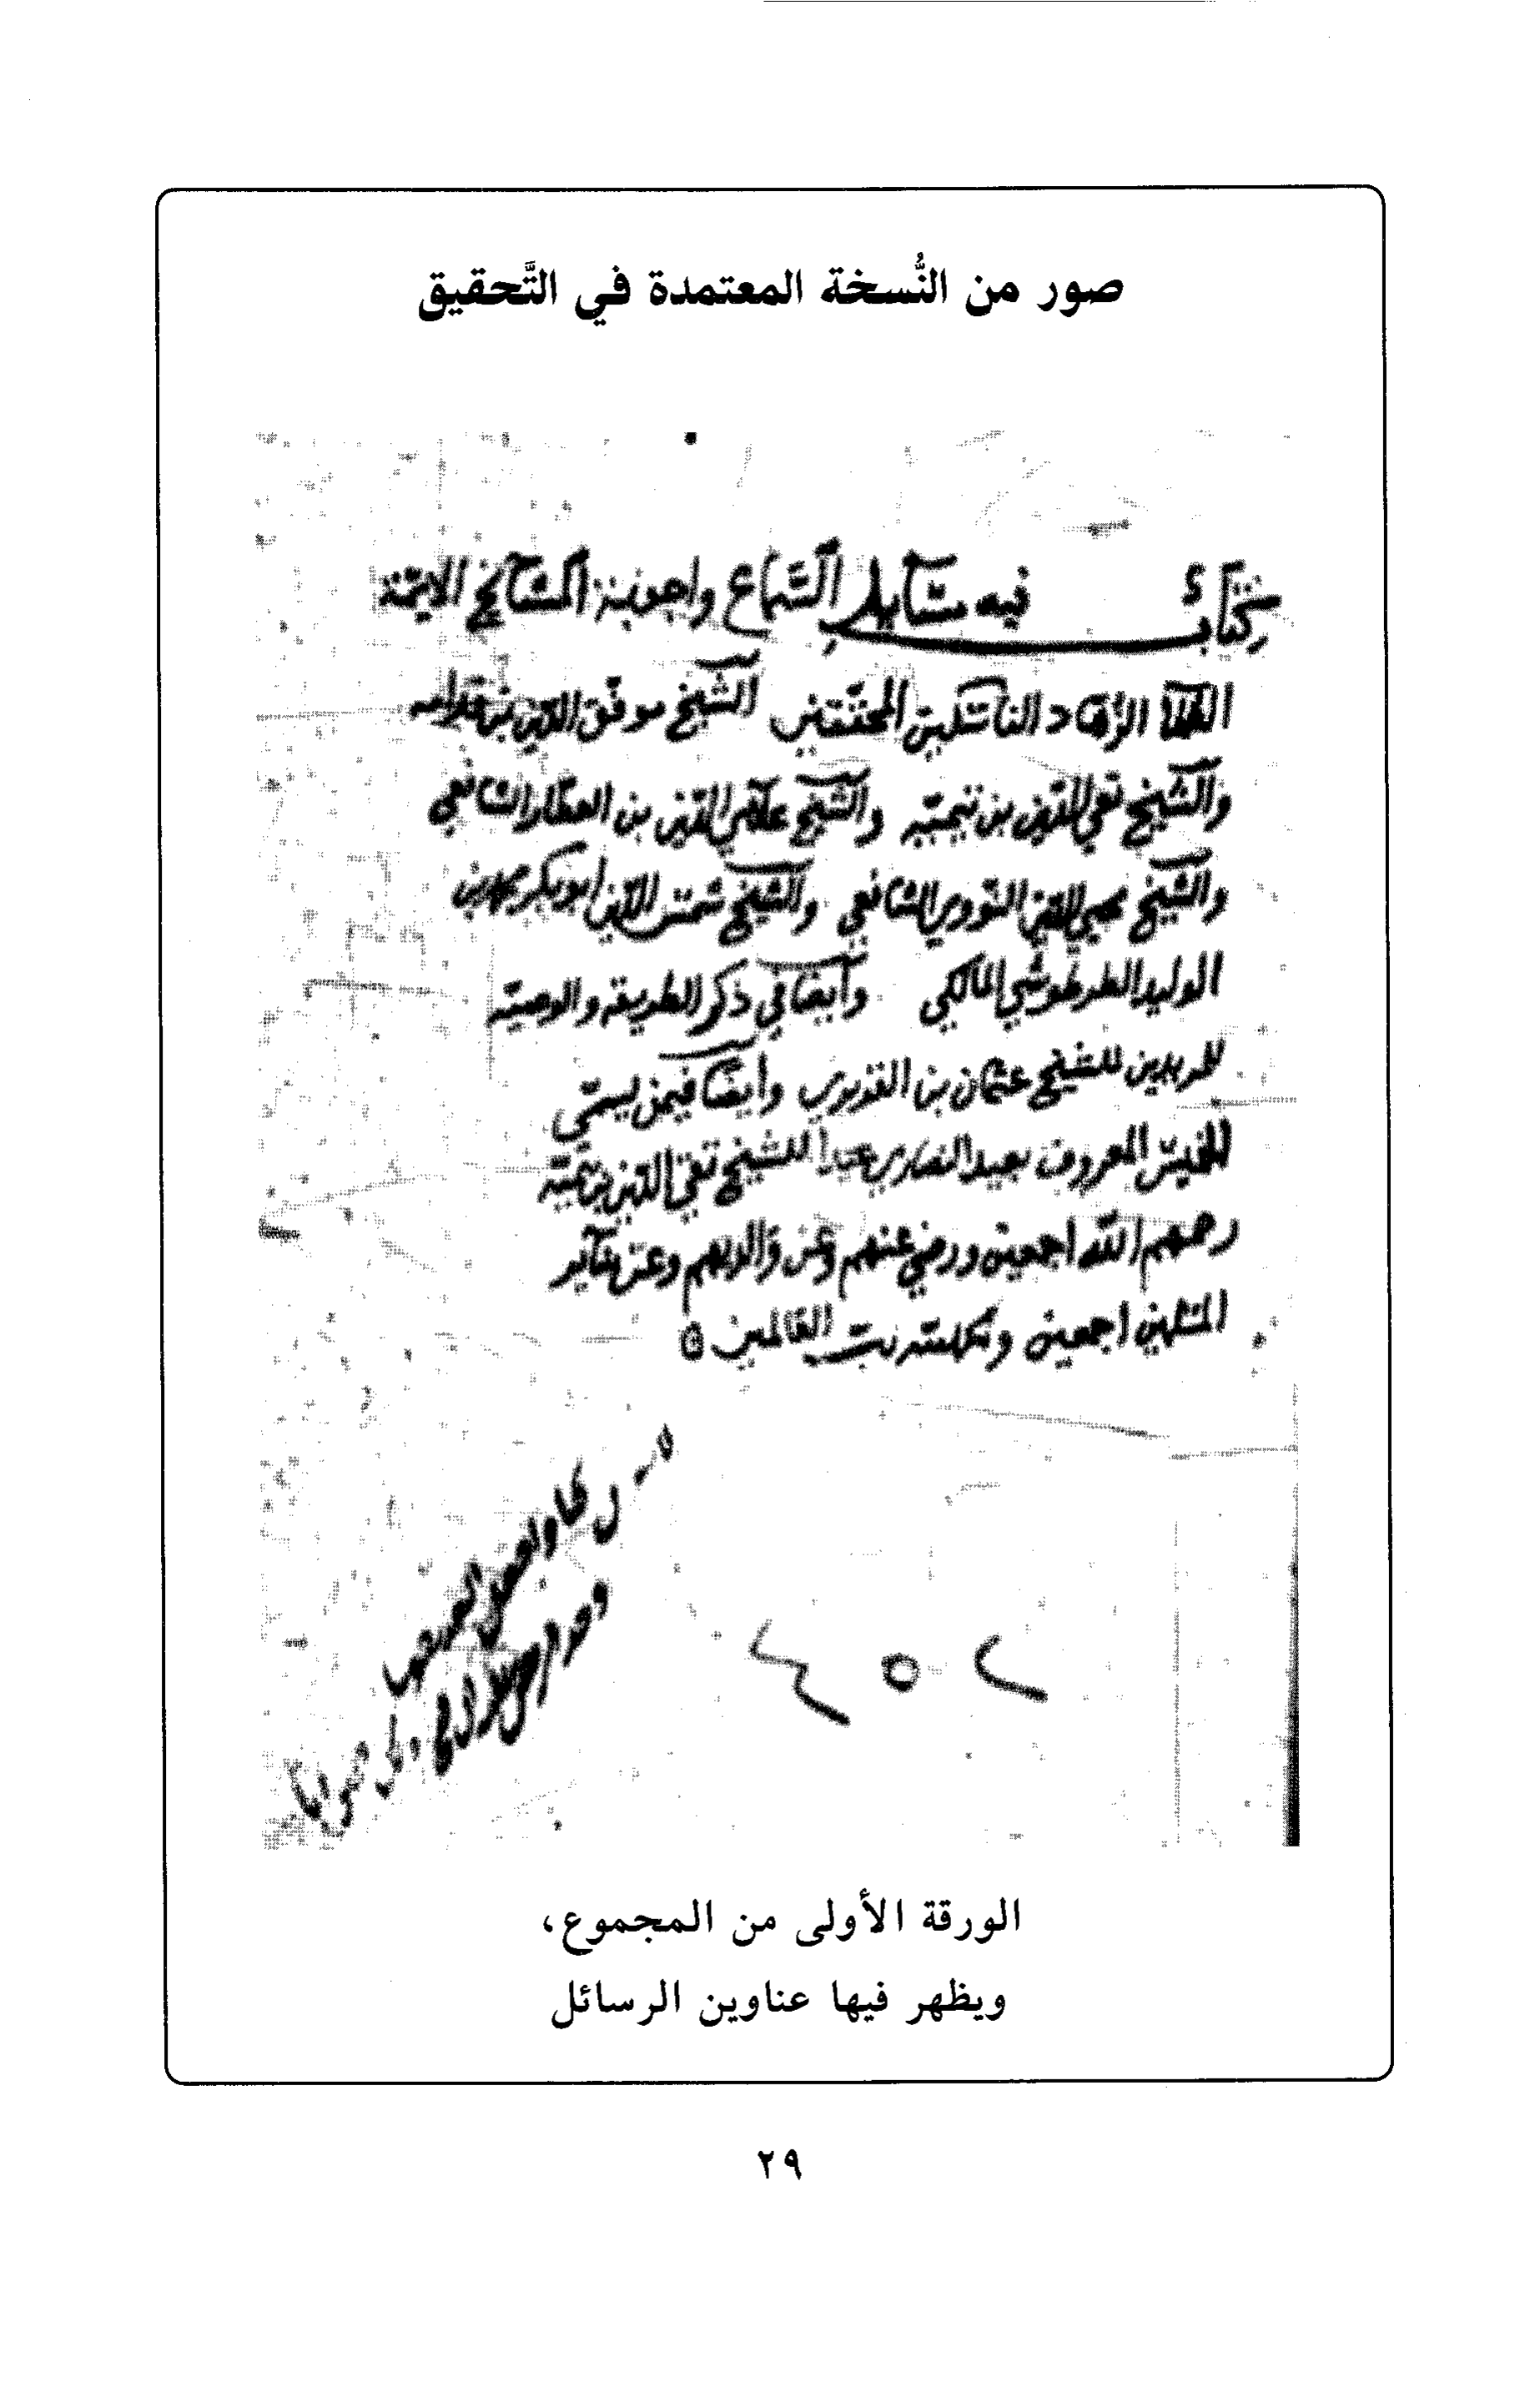 صور من النُّسخة المعتمدة في التَّحقيق
كتاب فيه مسايل السماع واجوبة المشايخ الايمة
العلما الزهاد الناسكين المحققين الشيخ موفق الدين بن قدامه
والشيخ تقي الدين بن تيمية والشيخ علاي الدين بن العطار الشافعي
والشيخ محيي الدين النووي الشافعي والشيخ شمس الدين ابو بكر محمد بن
الوليد الطرطوشي المالكي وايضا في ذكر الطريقة والوصية
للمريدين للشيخ عثمان بن وايضا فيمن يسمي
الخميس المعروف بعيد النصارى عيدا للشيخ تقي الدين بن تيمية
رحمهم الله اجمعين ورضي عنهم وعن والديهم وعن ساير
المسلمين اجمعين
الورقة الأولى من المجموع،
ويظهر فيها عناوين الرسائل
٢٩